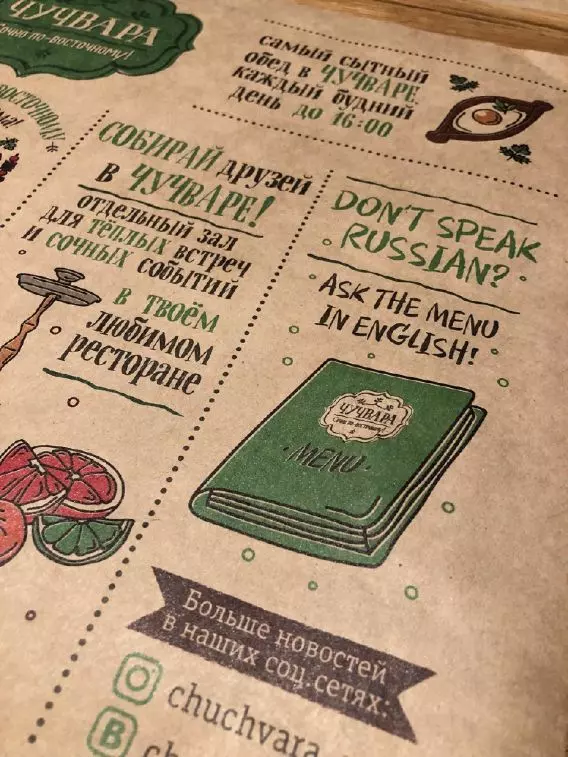 ЧУЧВАРА
Сочно по-восточному!
самый сытный
обед в ЧУЧВАРЕ
каждый будний
день до 16:00
СОБИРАЙ друзей
в ЧУЧВАРЕ!
отдельный зал
для тёплых встреч
и сочных событий
в твоём
любимом
ресторане
DON'T SPEAK
RUSSIAN?
ASK THE MENU
IN ENGLISH!
ЧУЧВАРА
MENU
Больше новостей
в наших соц.сетях:
chuchvara